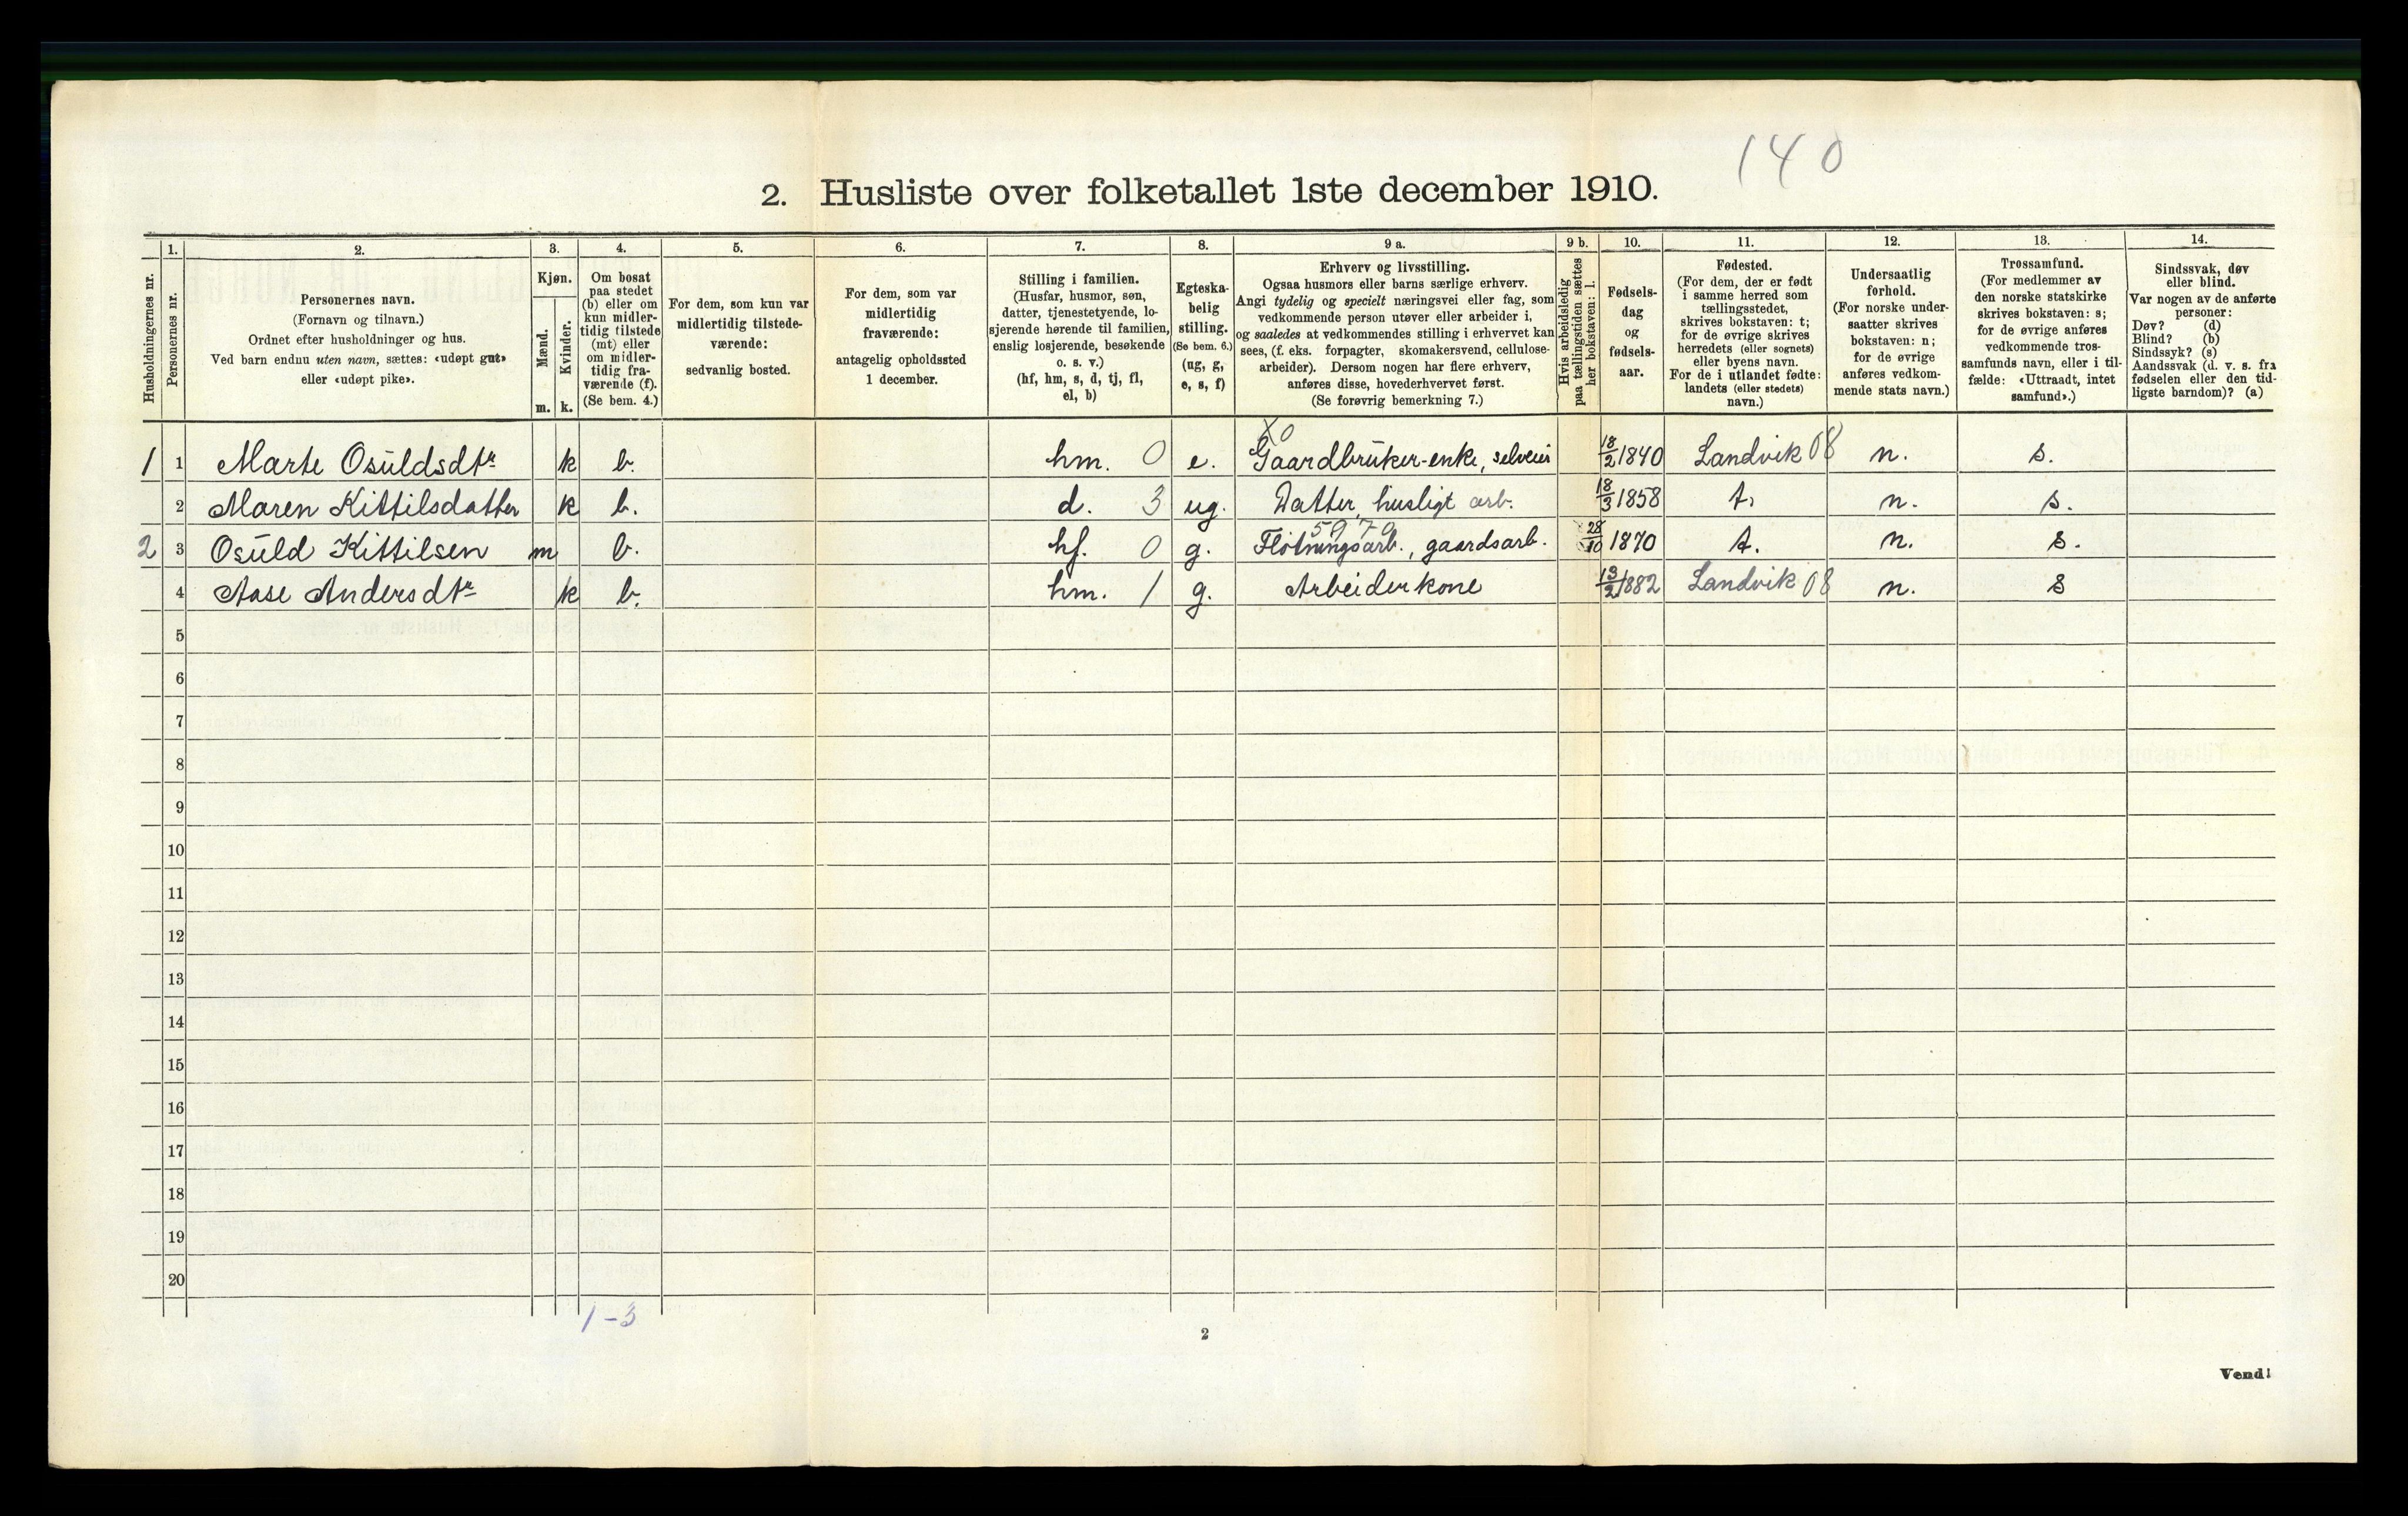 140
2. Husliste over folketallet 1ste december 1910.
Husholdningernes nr.
1. Personernes nr.
2. Personernes navn.
(Fornavn og tilnavn.)
Ordnet efter husholdninger og hus.
Ved barn endnu uten navn, sættes: «udøpt gut»
eller «udøpt pike».
3. Kjøn.
Mænd. m.
Kvinder. k.
4. Om bosat
paa stedet
(b) eller om
kun midler-
tidig tilstede
(mt) eller
om midler-
tidig fra-
værende (f).
(Se bem. 4.)
5. For dem, som kun var
midlertidig tilstede-
værende:
sedvanlig bosted.
6. For dem, som var
midlertidig
fraværende:
antagelig opholdssted
1 december.
7. Stilling i familien.
(Husfar, husmor, søn,
datter, tjenestetyende, lo-
sjerende hørende til familien,
enslig losjerende, besøkende
o. s. v.)
(hf, hm, s, d, tj, fl,
el, b)
8. Egteska-
belig
stilling.
(Se bem. 6.)
(ug, g,
e, s, f)
9 a. Erhverv og livsstilling.
Ogsaa husmors eller barns særlige erhverv.
Angi tydelig og specielt næringsvei eller fag, som
vedkommende person utøver eller arbeider i,
og saaledes at vedkommendes stilling i erhvervet kan
sees, (f. eks. forpagter, skomakersvend, cellulose-
arbeider). Dersom nogen har flere erhverv,
anføres disse, hovederhvervet først.
(Se forøvrig bemerkning 7.)
9 b. Hvis arbeidsledig
paa tællingstiden sættes
her bokstaven: l.
10. Fødsels-
dag
og
fødsels-
aar.
11. Fødested.
(For dem, der er født
i samme herred som
tællingsstedet,
skrives bokstaven: t;
for de øvrige skrives
herredets (eller sognets)
eller byens navn.
For de i utlandet fødte:
landets (eller stedets)
navn.)
12. Undersaatlig
forhold.
(For norske under-
saatter skrives
bokstaven: n;
for de øvrige
anføres vedkom-
mende stats navn.)
13. Trossamfund.
(For medlemmer av
den norske statskirke
skrives bokstaven: s;
for de øvrige anføres
vedkommende tros-
samfunds navn, eller i til-
fælde: «Uttraadt, intet
samfund».)
14. Sindssvak, døv
eller blind.
Var nogen av de anførte
personer:
Døv? (d)
Blind? (b)
Sindssyk? (s)
Aandssvak (d. v. s. fra
fødselen eller den tid-
ligste barndom)? (a)
X0
1 1 Marte Osuldsdtr k b. hm. 0 e. Gaardbruker-enke, selveier 18/2 1840 Landvik 08 n. s.
2 Maren Kittilsdatter k b. d. 3 ug. Datter, husligt arb. 18/3 1858 t. n. s.
5979
2 3 Osuld Kittilsen m b. hf. 0 g. Fløtningsarb., gaardsarb. 28/10 1870 t. n. s.
4 Aase Andersdtr k b. hm. 1 g. Arbeiderkone 13/2 1882 Landvik 08 n. s
5
6
7
8
9
10
11
12
13
14
15
16
17
18
19
20
1-3
2
Vend!